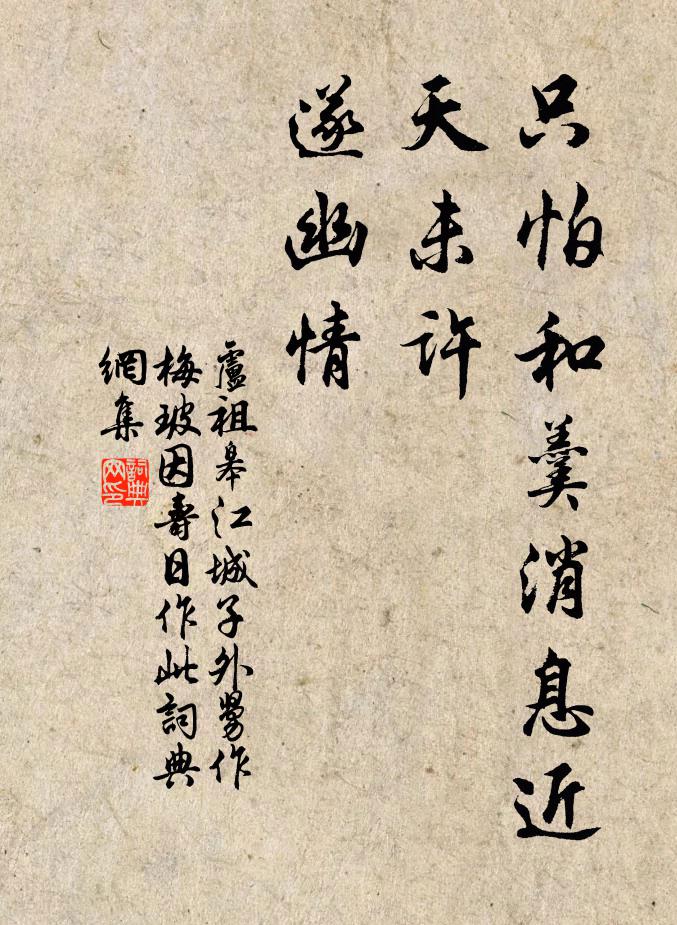 只怕和羹消息近
天未許
遂幽情
盧祖皋江城子外舅作
梅玻因壽日作此詞典
網集
詞典網印